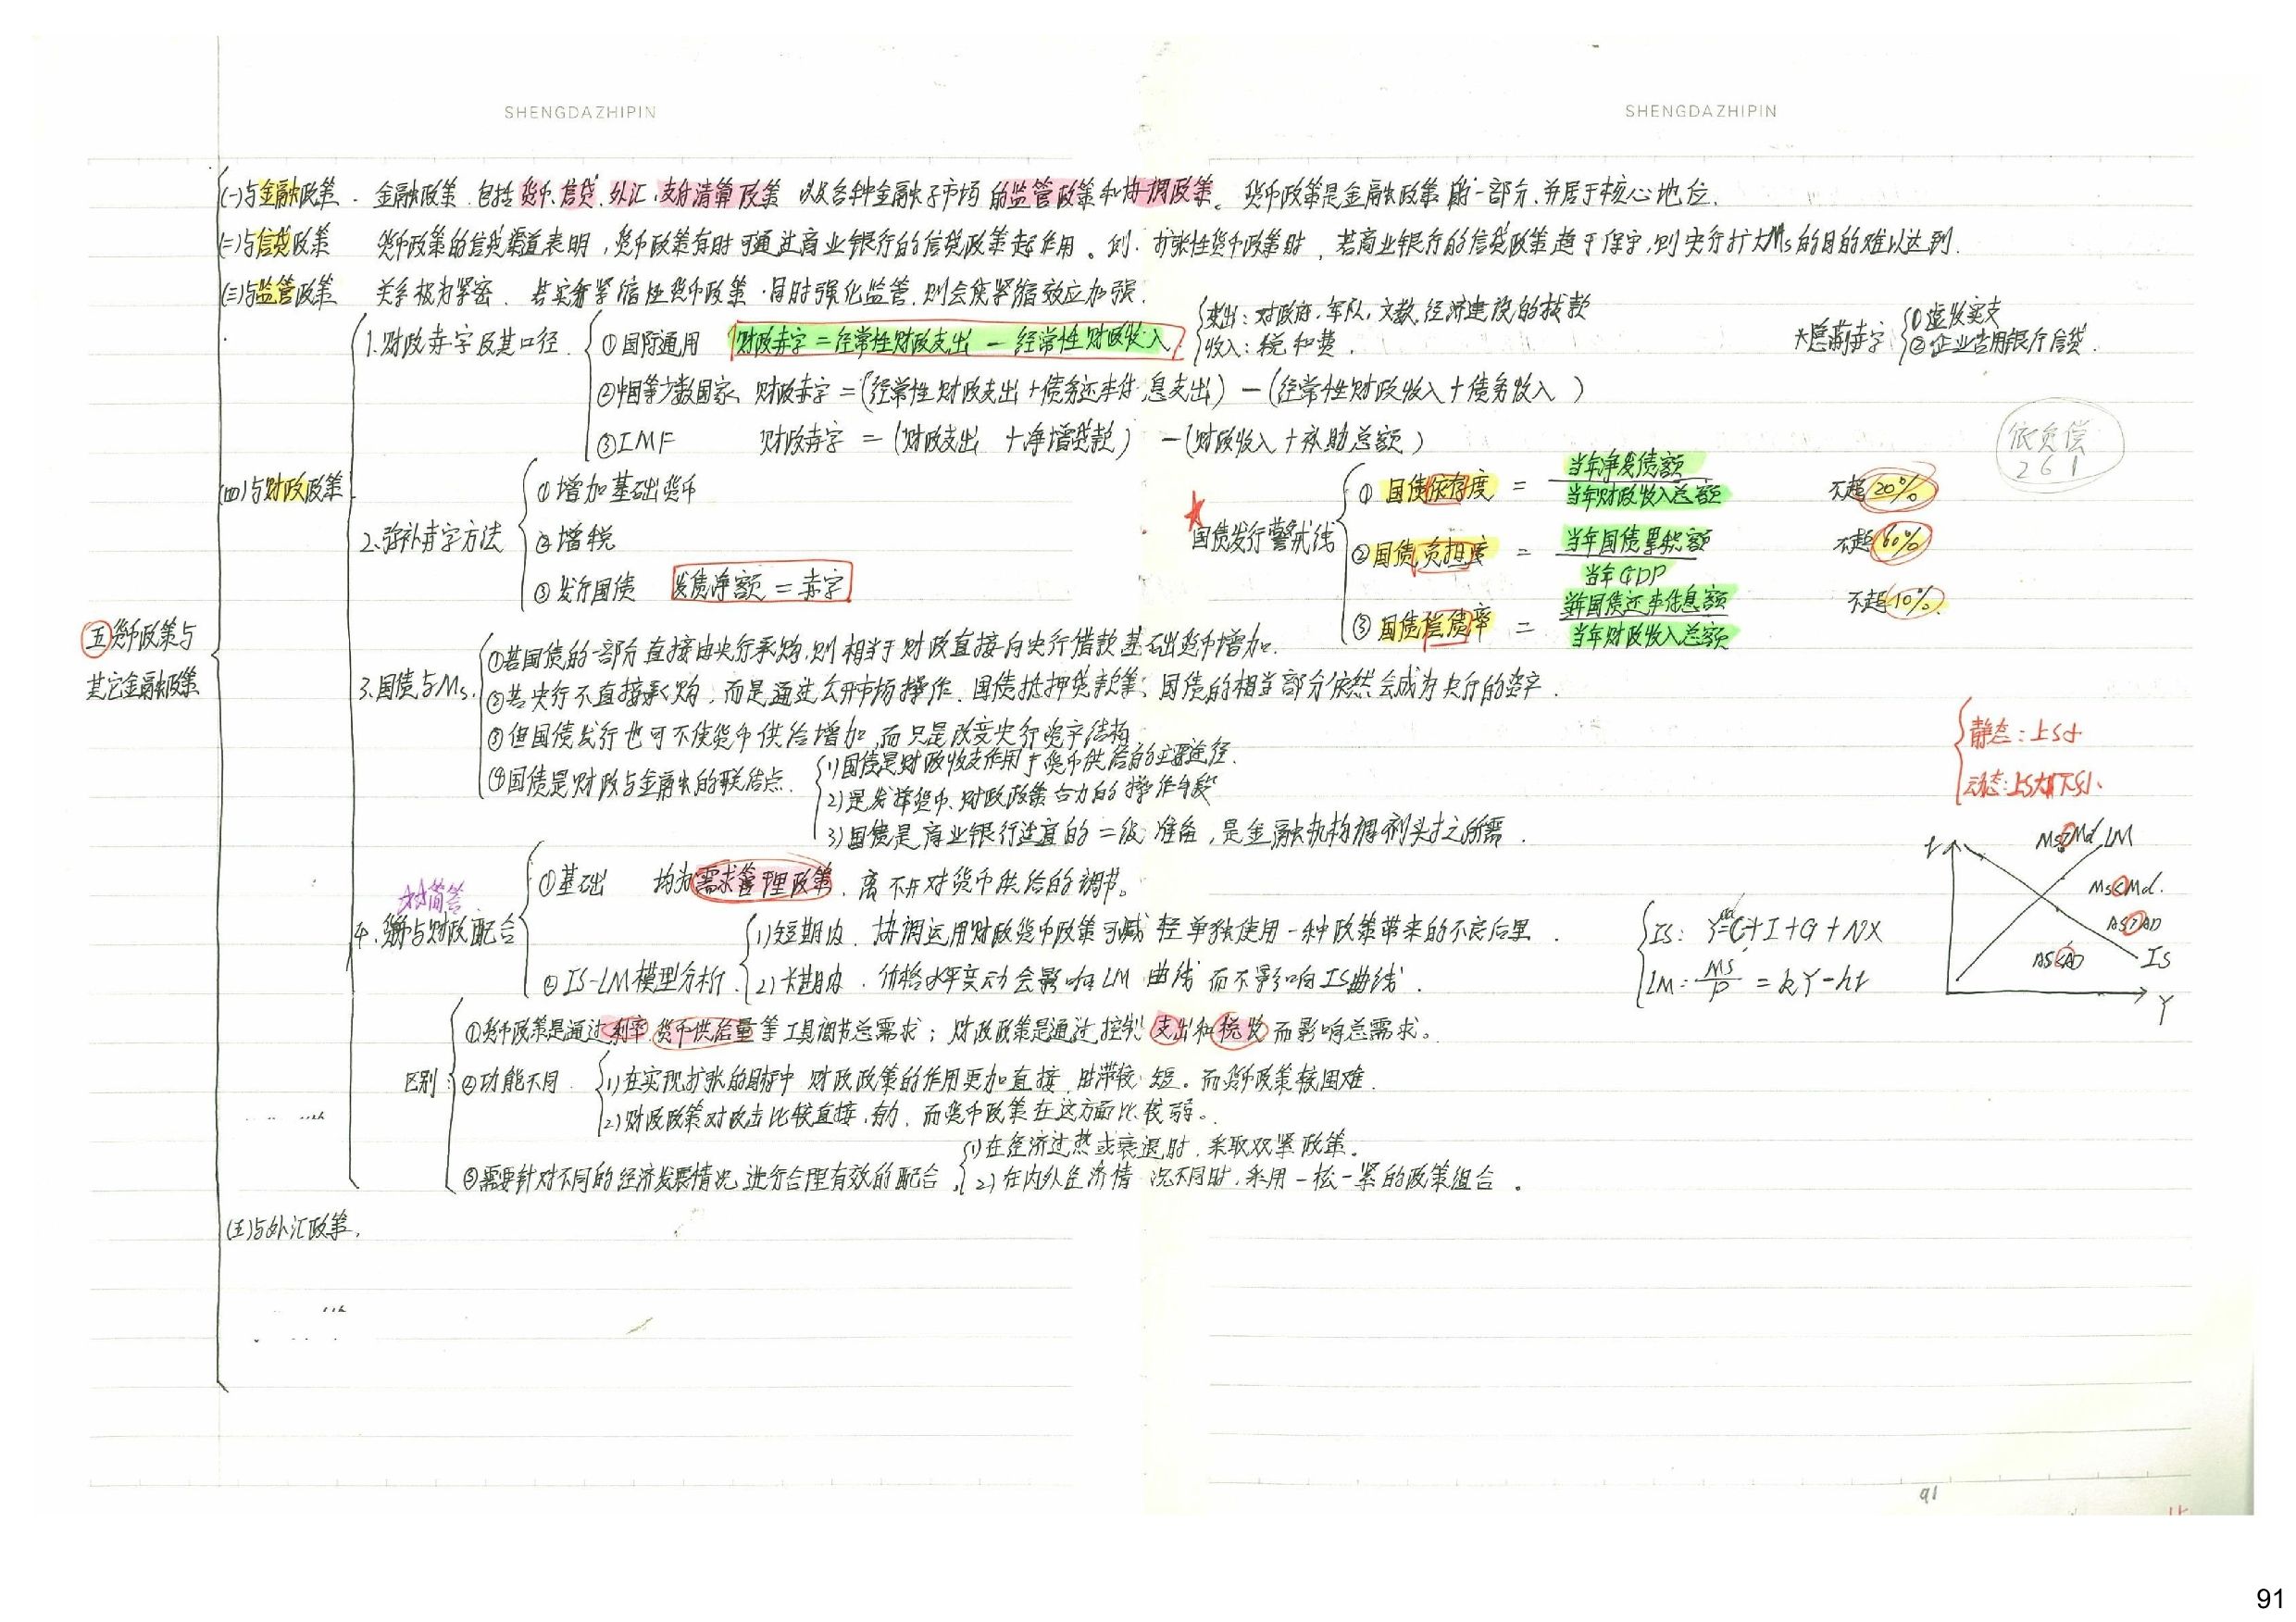 SHENGDAZHIPIN
SHENGDAZHIPIN
(一)与金融政策. 金融政策.包括货币、信贷、外汇、支付清算政策 以及各种金融子市场的监管政策和协调政策。货币政策是金融政策的一部分,并居于核心地位.
(二)与信贷政策 货币政策的信贷渠道表明,货币政策有时可通过商业银行的信贷政策起作用。例.扩张性货币政策时,若商业银行的信贷政策趋于保守,则央行扩大Ms的目的难以达到.
(三)与监管政策 关系极为紧密. 若实行紧缩性货币政策.同时强化监管,则会使紧缩效应加强.
(四)与财政政策
1.财政赤字及其口径.
①国际通用 财政赤字=经常性财政支出-经常性财政收入
支出:对政府、军队、文教、经济建设的拨款
收入:税和费.
*隐蔽赤字
①虚收实支
②企业占用银行信贷.
②中国等少数国家、财政赤字=(经常性财政支出+债务还本付息支出)-(经常性财政收入+债务收入)
③IMF 财政赤字=(财政支出+净增贷款)-(财政收入+补助总额)
依负偿
2 6 1
2.弥补赤字方法
①增加基础货币
②增税
③发行国债 发债净额=赤字
★国债发行警戒线
①国债依存度=当年净发债额/当年财政收入总额 不超20%
②国债负担度=当年国债累积额/当年GDP 不超60%
③国债偿债率=当年国债还本付息额/当年财政收入总额 不超10%.
五 货币政策与
其它金融政策
3.国债与Ms.
①若国债的一部分直接由央行承购,则相当于财政直接向央行借款基础货币增加.
②若央行不直接承购,而是通过公开市场操作、国债抵押贷款等、国债的相当部分依然会成为央行的资产.
③但国债发行也可不使货币供给增加,而只是改变央行资产结构
④国债是财政与金融的联结点.
1)国债是财政收支作用于货币供给的主要途径.
2)是发挥货币、财政政策合力的操作手段
3)国债是商业银行适宜的二级准备,是金融机构调剂头寸之所需.
静态:上S下d
动态:上S大下S小.
简答
4.货币与财政配合
①基础 均为需求管理政策.离不开对货币供给的调节。
②IS-LM模型分析.
1)短期内.协调运用财政货币政策可减轻单独使用一种政策带来的不良后果.
2)长期内.价格水平变动会影响LM曲线而不影响IS曲线.
IS: Y=C+I+G+NX
LM: Ms/P=kY-hr
r
Ms>Md LM
Ms<Md.
AS>AD
AS<AD
IS
Y
区别:
①货币政策是通过利率、货币供给量等工具调节总需求;财政政策是通过控制支出和税收而影响总需求。
②功能不同.
1)在实现扩张的目标中 财政政策的作用更加直接,时滞较短。而货币政策较困难.
2)财政政策对攻击比较直接、有力,而货币政策在这方面比较弱。
③需要针对不同的经济发展情况,进行合理有效的配合.
1)在经济过热或衰退时,采取双紧政策.
2)在内外经济情况不同时,采用一松一紧的政策组合.
(五)与外汇政策.
91
91